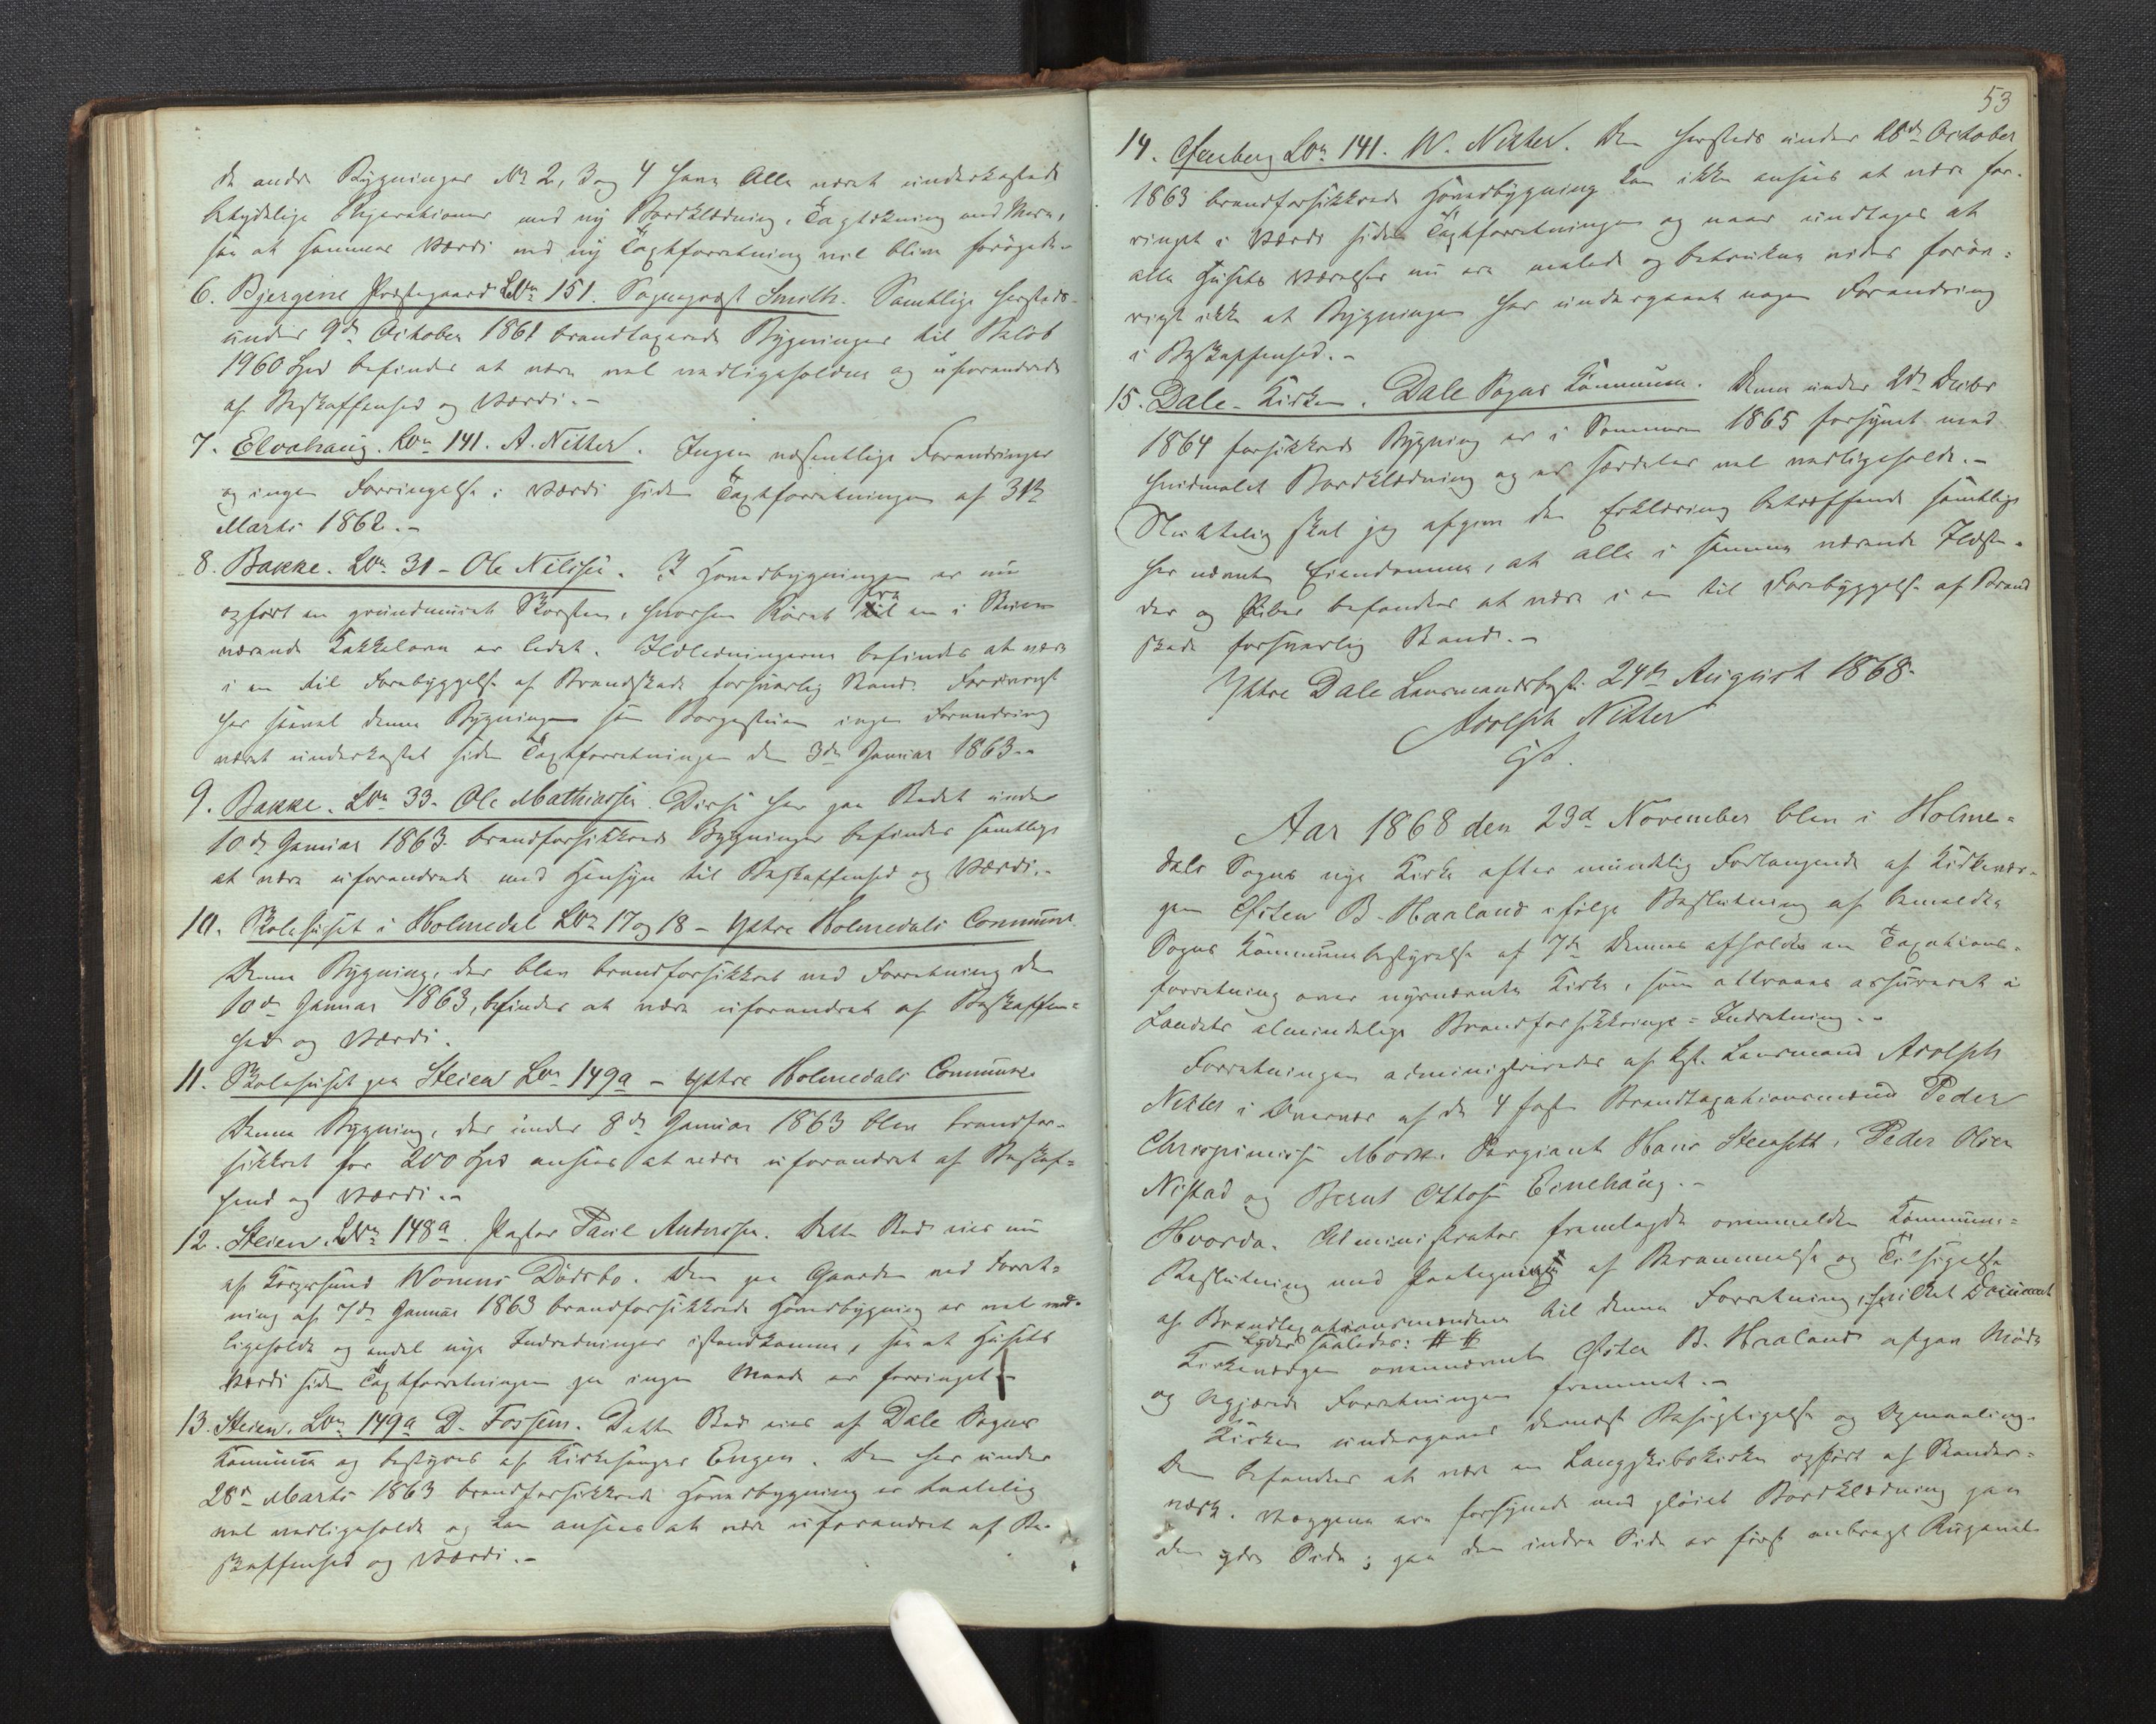 de andre Bygninger No 2, 3 og 4 have Alle været underkastede
betydelige Reparationer med ny Bordklædning, Tagtækning med Mere,
saa at sammes Værdi ved ny Taxtforretning vil blive forøget.-
6. Bjergene Præstegaard LNo 151. Sognepræst Smith. Samtlige hersteds
under 9de October 1861 brandtaxerede Bygninger til Beløb
1960 Spd befindes at være vel vedligeholdne og uforandrede
af Beskaffenhed og Værdi.-
7. Elvahaug. LNo 141. A. Nitter. Ingen væsentlige Forandringer
og ingen Forringelse i Værdi siden Taxtforretningen af 31te
Marts 1862.-
8. Bakke. LNo 31 - Ole Nilssen. I Hovedbygningen er nu
opført en grundmuret Skorsten, hvorhen Røret fra en i Stuen
værende Kakkelovn er ledet. Ildledningerne befindes at være
i en til Forebyggelse af Brandskade forsvarlig Stand. Forøvrigt
har saavel denne Bygningen som Borgestuen ingen Forandring
været underkastet siden Taxtforretningen den 3de Januar 1863.-
9. Bakke. LNo 33. Ole Mathiassen. Disse her paa Stedet under
10de Januar 1863 brandforsikkrede Bygninger befindes samtlige
at være uforandrede med Hensyn til Beskaffenhed og Værdi.-
10. Skolehuset i Holmedal LNo 17 og 18 - Yttre Holmedals Commune
Denne Bygning, der blev brandforsikkret ved Forretning den
10de Januar 1863, befindes at være uforandret af Beskaffen=
hed og Værdi.
11. Skolehuset paa Steien LNo 149a - Yttre Holmedals Commune.
Denne Bygning, der under 8de Januar 1863 blev brandfor-
sikkret for 200 Spd ansees at være uforandret af Beskaf=
fenhed og Værdi.-
12. Steien LNo 148a. Pastor Paul Anderssen. Dette Sted eies nu
af Wonens Dødsbo. Den paa Gaarden ved Forret=
ning af 7de Januar 1863 brandforsikkrede Hovedbygning er vel ved=
ligeholdt og endel nye Indredninger istandkomne, saa at Husets
Værdi siden Taxtforretningen paa ingen Maade er forringet.-
13. Steien. LNo 149a D. Fossem. Dette Sted eies af Dale Sogns
Kommune og bestyres af Kirkesanger Engen. Den her under
28de Marts 1863 brandforsikkrede Hovedbygning er taalelig
vel vedligeholdt og kan ansees at være uforandret af Be-
skaffenhed og Værdi.-
53
14. LNo 141. W. Nitter. Den hersteds under 28de October
1863 brandforsikkrede Hovedbygning kan ikke ansees at være for-
ringet i Værdi siden Taxtforretningen og naar undtages at
alle Husets Værelser nu ere malede og betrukne vides forøv=
rigt ikke at Bygningen har undergaaet nogen Forandring
i Beskaffenhed.-
15. Dale-Kirke. Dale Sogns Kommune. Denne under 2de Decbr
1864 forsikkrede Bygning er i Sommeren 1865 forsynet med
hvidmalet Bordklædning og er særdeles vel vedligeholdt.-
Sluttelig skal jeg afgive den Erklæring betræffende samtlige
her nævnte Eiendomme, at alle i samme værende Ildste-
der og Piber befandtes at være i en til Forebyggelse af Brand
skade forsvarlig Stand.-
Yttre Dale Lensmandsbest. 24de August 1868.
Adolph Nitter
Cst.
Aar 1868 den 23d November blev i Holme=
dals Sogns nye Kirke efter mundtlig Forlangende af Kirkevær-
gen Østen B. Haaland ifølge Beslutning af bemeldte
Sogns Kommunebestyrelse af 7de dennes afholdt en Taxations-
forretning over nysnævnte Kirke, som attraaes assureret i
Landets almindelige Brandforsikkrings=Indretning.-
Forretningen administreredes af Cst. Lensmand Adolph
Nitter i Overvær af de 4 faste Brandtaxationsmænd Peder
Chrispinussen Mork. Sergiant Hans Steensett, Peder Olsen
Nistad og Bernt Ottosen Einehaug.-
Hvorda. Administrator fremlagde ovenmeldte Kommune=
Beslutning med Paategning af Berammelse og Tilsigelse
af Brandtaxationsmændene til denne Forretning, hvilket Document
lyder saaledes: # #
Kirkeværgen ovennævnte Østen B. Haaland afgav Møde
og begjærede Forretningen fremmet.-
Kirken undergaves dernæst Besigtigelse og Opmaaling.
Den befandtes at være en Langskibskirke opført af Stander=
værk. Væggene ere forsynede med pløiet Bordklædning paa
den ydre Side; paa den indre Side er først anbragt Rupanel